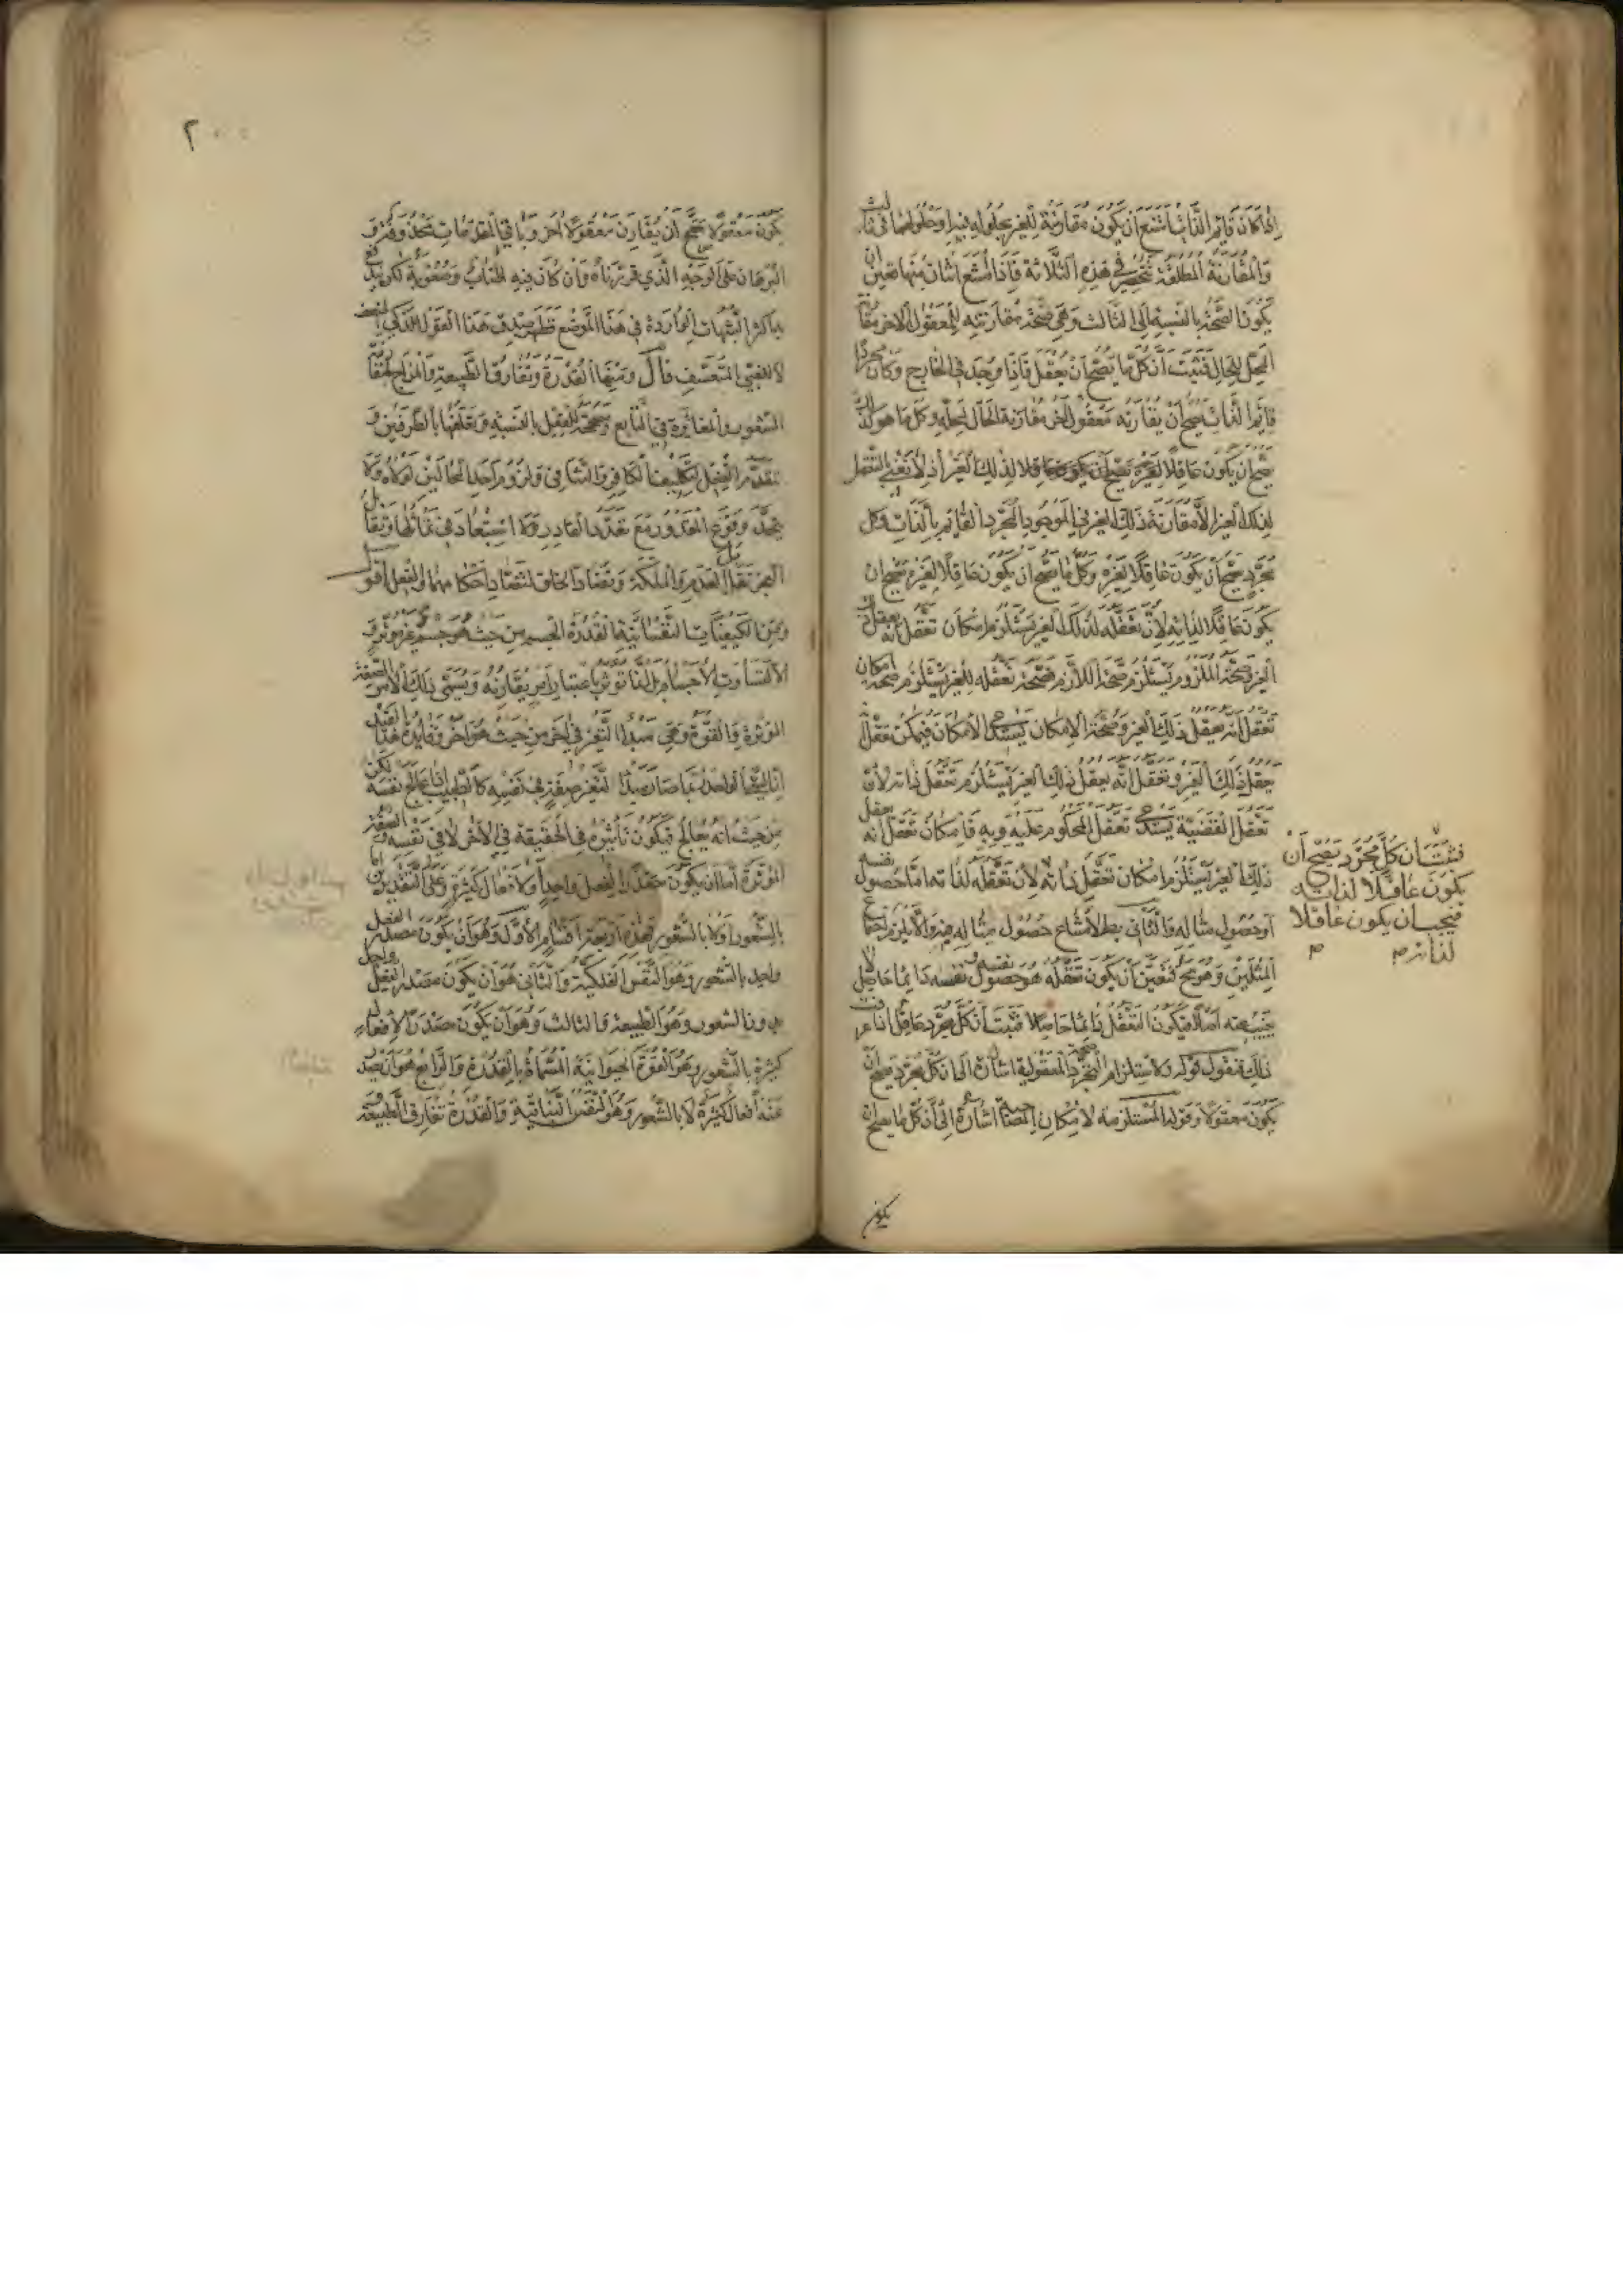 اذا كان قايم الذات امتنع ان يكون مقارنة للغير بحلوله فيه او حلولهما في ثالث
والمقارنة المطلقة تنحصر في هذه الثلاثة فاذا امتنع اثنان منها تعين ان
يكون الصحة بالنسبة الى الثالث وهي صحة مقارنته للمعقول الاخر مقارنة
المحل للحال فثبت ان كل ما يصح ان يعقل فاذا وجد في الخارج وكان مجردا
قايما بالذات يصح ان يقارنه معقول اخر مقارنة الحال لمحله وكل ما هو كذلك
يصح ان يكون عاقلا لغيره لذلك الغير اذ لا نعني بالتعقل
لذلك الغير الا مقارنة ذلك الغير في الموجود المجرد القائم بالذات فكل
مجرد يصح ان يكون عاقلا لغيره وكل ما يصح ان يكون عاقلا لغيره يصح ان
يكون عاقلا لذاته لان تعقله لذلك الغير يستلزم امكان تعقل انه يعقل ذلك
الغير وصحة الملزوم يستلزم صحة اللازم فصحة تعقله للغير يستلزم صحة امكان
تعقل انه يعقل ذلك الغير وصحة الامكان يستدعي الامكان فيمكن تعقل
ذلك الغير وتعقل انه يعقل ذلك الغير يستلزم تعقل ذاته لان
تعقل القضية يستدعي تعقل المحكوم عليه وبه فامكان تعقل انه يعقل
ذلك الغير يستلزم امكان تعقل ذاته لان تعقله لذاته اما حصول نفسه
او حصول مثاله والثاني بط لامتناع حصول مثاله فيه والا يلزم اجتماع
المثلين وهو مح فتعين ان يكون تعقله هو حصول نفسه دايما حاصل لا
يغيب عنه اصلا فيكون التعقل دايما حاصلا فثبت ان كل مجرد عاقل اذا عرفت
ذلك فنقول قوله ولاستلزام التجرد صحة المعقولية اشارة الى ان كل مجرد يصح ان
يكون معقولا وقوله المستلزمة لامكان المصاحبة اشارة الى ان كل ما يصح ان
يكون
فثبت ان كل مجرد يصح ان
يكون عاقلا لذاته
فيجب ان يكون عاقلا
لذاته صح م
٢٠٠
يكون معقولا صح ان يقارن معقولا اخر وباقي المقدمات محذوف
البرهان على الوجه الذي قررناه وان كان فيه اطناب وصعوبة لكن يندفع
به اكثر الشبهات الواردة في هذا الموضع فظهر صدق هذا القول للذكي المنصف
لا للغبي المتعسف قال ومنها القدرة وتفارق الطبيعة والمزاج بمقارنة
الشعور والمغايرة في التابع ومصححة للفعل بالنسبة وتعلقها بالطرفين و
تتقدم الفعل لتكليف الكافر وللتنافي ولزوم احد المحالين لولاه ولا
يتحد وقوع المقدور مع تعدد القادر ولا استبعاد في تماثلها وتقابل
العجز تقابل العدم والملكة وتضاد الخلق لتضاد احكامهما والفعل اقول
ومن الكيفيات النفسانية القدرة الجسم من حيث هو جسم غير مؤثر و
الا لتساوت الاجسام بل انما تؤثر باعتبار امر يقارنه ويسمى ذلك الامر الصفة
المؤثرة والقوة وهي مبدأ التغير في اخر من حيث هو اخر وفايدة هذا القيد
ان الشيء الواحد ربما صار مبدأ لتغير صفة في نفسه كالطبيب اذا عالج نفسه لكن
من حيث انه يعالج فيكون تأثيره في الحقيقة في الاخر لا في نفسه والصفة
المؤثرة اما ان يكون مصدرا لفعل واحد او لافعال كثيرة وعلى التقديرين اما
بالشعور او لا بالشعور فهذه اربعة اقسام الاول وهو ان يكون مصدر الفعل
واحد بالشعور وهو النفس الفلكية والثاني هو ان يكون مصدرا لفعل واحد
بدون الشعور وهو الطبيعة والثالث وهو ان يكون مصدرا لافعال
كثيرة بالشعور وهو القوة الحيوانية المسماة بالقدرة والرابع هو ان يصدر
عنه افعال كثيرة لا بالشعور وهو النفس النباتية والقدرة تفارق الطبيعة